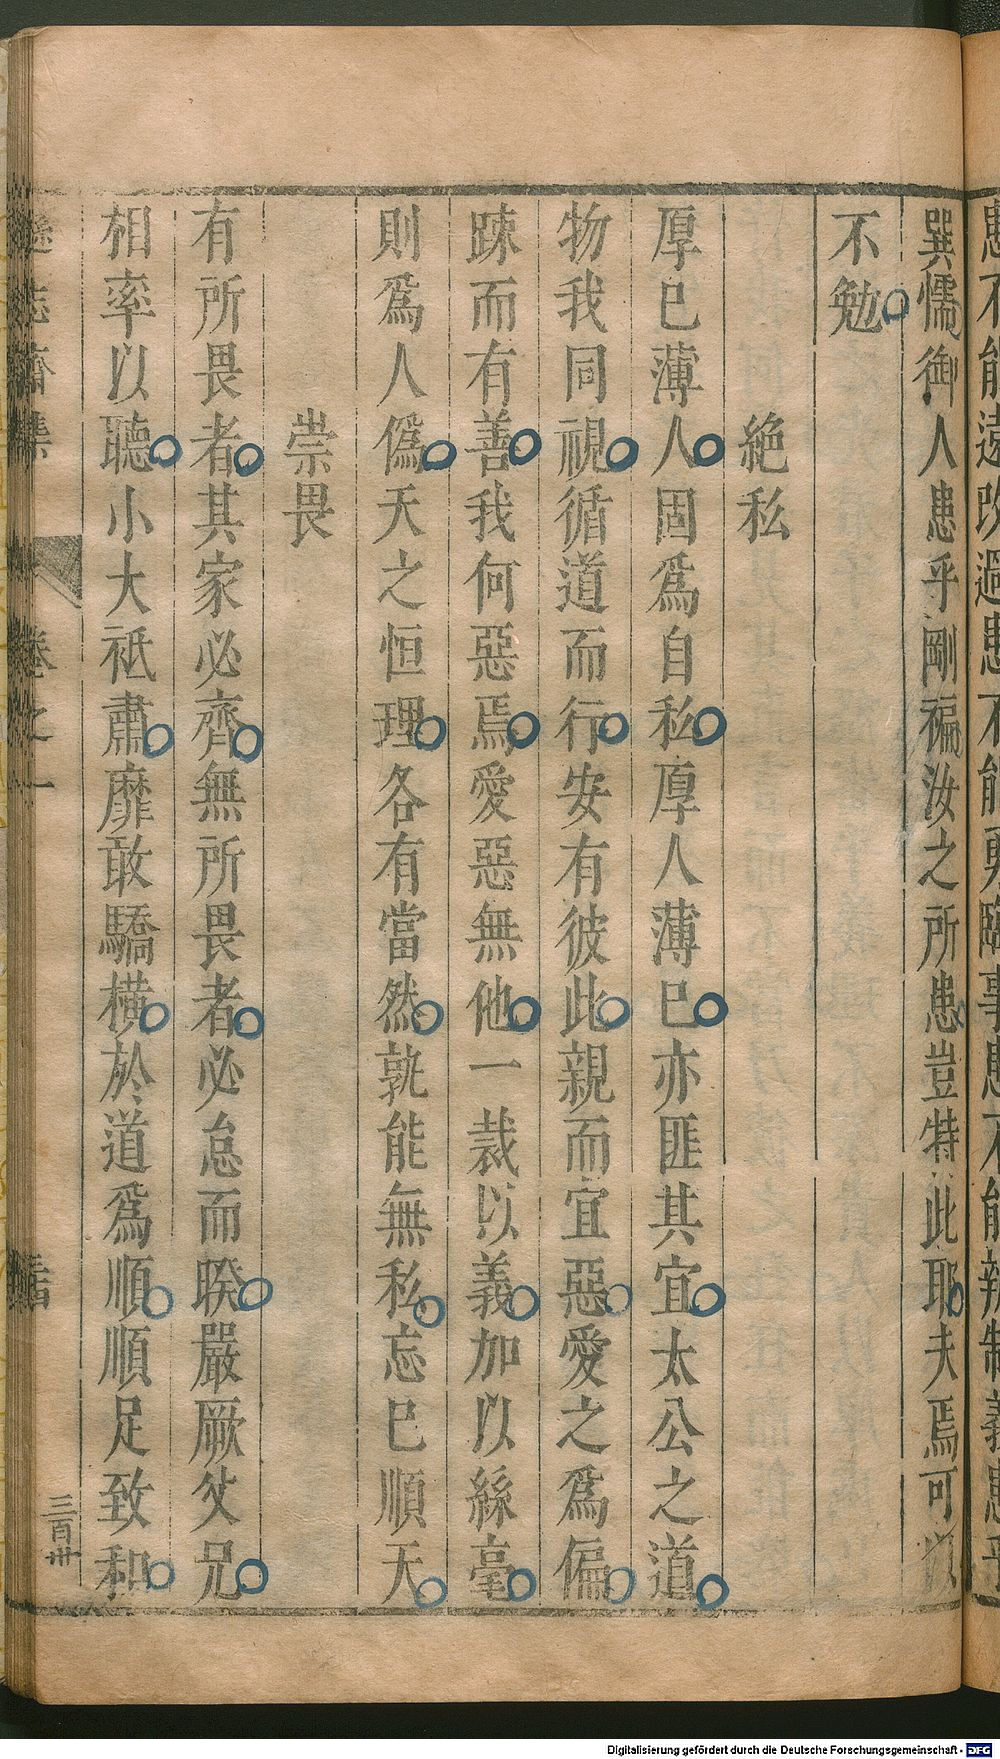 巽懦御人患乎剛褊汝之所患豈特此耶夫焉可以
不勉
絶私
厚已薄人固爲自私厚人薄已亦匪其宜太公之道
物我同視循道而行安有彼此親而宜惡愛之爲偏
踈而有善我何惡焉愛惡無他一裁以義加以絲毫
則爲人僞天之恒理各有當然孰能無私忘已順天
崇畏
有所畏者其家必齊無所畏者必怠而睽嚴厥父兄
相率以聽小大祗肅靡敢驕橫於道爲順順足致和
遜志齋集
卷之一
三百卅
Digitalisierung gefördert durch die Deutsche Forschungsgemeinschaft - DFG